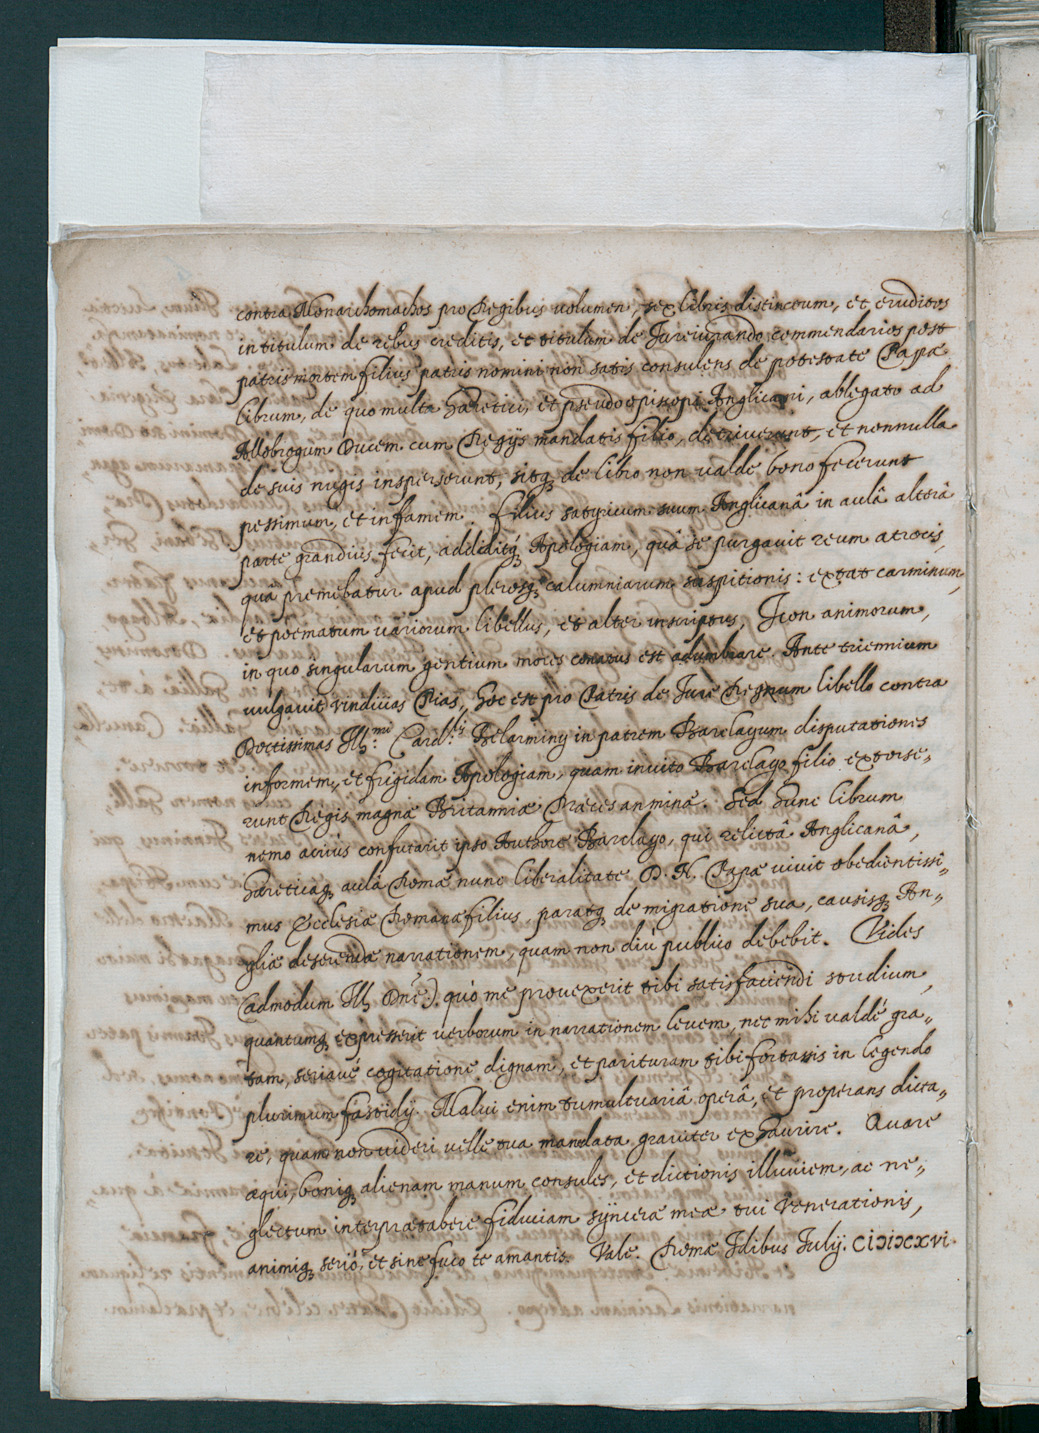 contra Monarchomachos pro Regibus volumen, sex libris distinctum, et eruditos
in titulum de rebus creditis, et titulum de Jureiurando commendarios post
patris mortem filius patris nomini non satis consulens de potestate Papæ
librum, de quo multa hæretici, et pseudoepiscopi Anglicani, ablegato ad
Allobrogum Ducem cum Regijs mandatis filio, detriverunt, et nonnulla
de suis nugis insperserunt, sitq; de libro non valdè bono fecerunt
pessimum, et infamem. Filius satyricum suum Anglicanâ in aulâ alterâ
parte grandius fecit, addiditq́; Apologiam, quâ se purgavit reum atrocis,
quâ premebatur apud plerosq; calumniarum suspitionis: extat carminum,
et poematum variorum libellus, et alter inscriptus, Icon animorum,
in quo singularum gentium mores conatus est adumbrare. Ante triennium
vulgavit vindicias Pias, hoc est pro Patris de Jure Regnum libello contra
Doctissimas Ill.mi Card.lis Belarminy in patrem Barclayum disputationes
informem, et frigidam Apologiam, quam invito Barclayo filio extorse=
runt Regis magnæ Britanniæ Præces an minæ. Sed hunc librum
nemo acrius confutarit ipso Authore Barclayo, qui relictâ Anglicanâ,
hæreticaq; aulâ Romæ nunc liberalitate D. N. Papæ vivit obedientissi=
mus Ecclesiæ Romanæ filius, paratq; de migratione sua, causisq; An=
gliæ deserendæ narrationem, quam non diù publico debebit. Vides
(admodum Ill. Dne) quò me provexerit tibi satisfaciendi studium,
quantumq; expresserit verborum in narrationem levem, nec mihi valdè gra=
tam, seriavè cogitatione dignam, et parituram tibi fortassis in legendo
plurimum fastidij. Malui enim tumultuariâ operâ, et properans dicta=
re, quam non videri velle tua mandata graviter exhaurire. Quare
æqui, boniq; alienam manum consules, et dictionis illuviem, ac ne=
glectum interprætabere fiduciam synceræ meæ tui Venerationis,
animiq; seriò, et sine fuco te amantis. Vale. Romæ Idibus Julij. CIↃIↃCXVI.